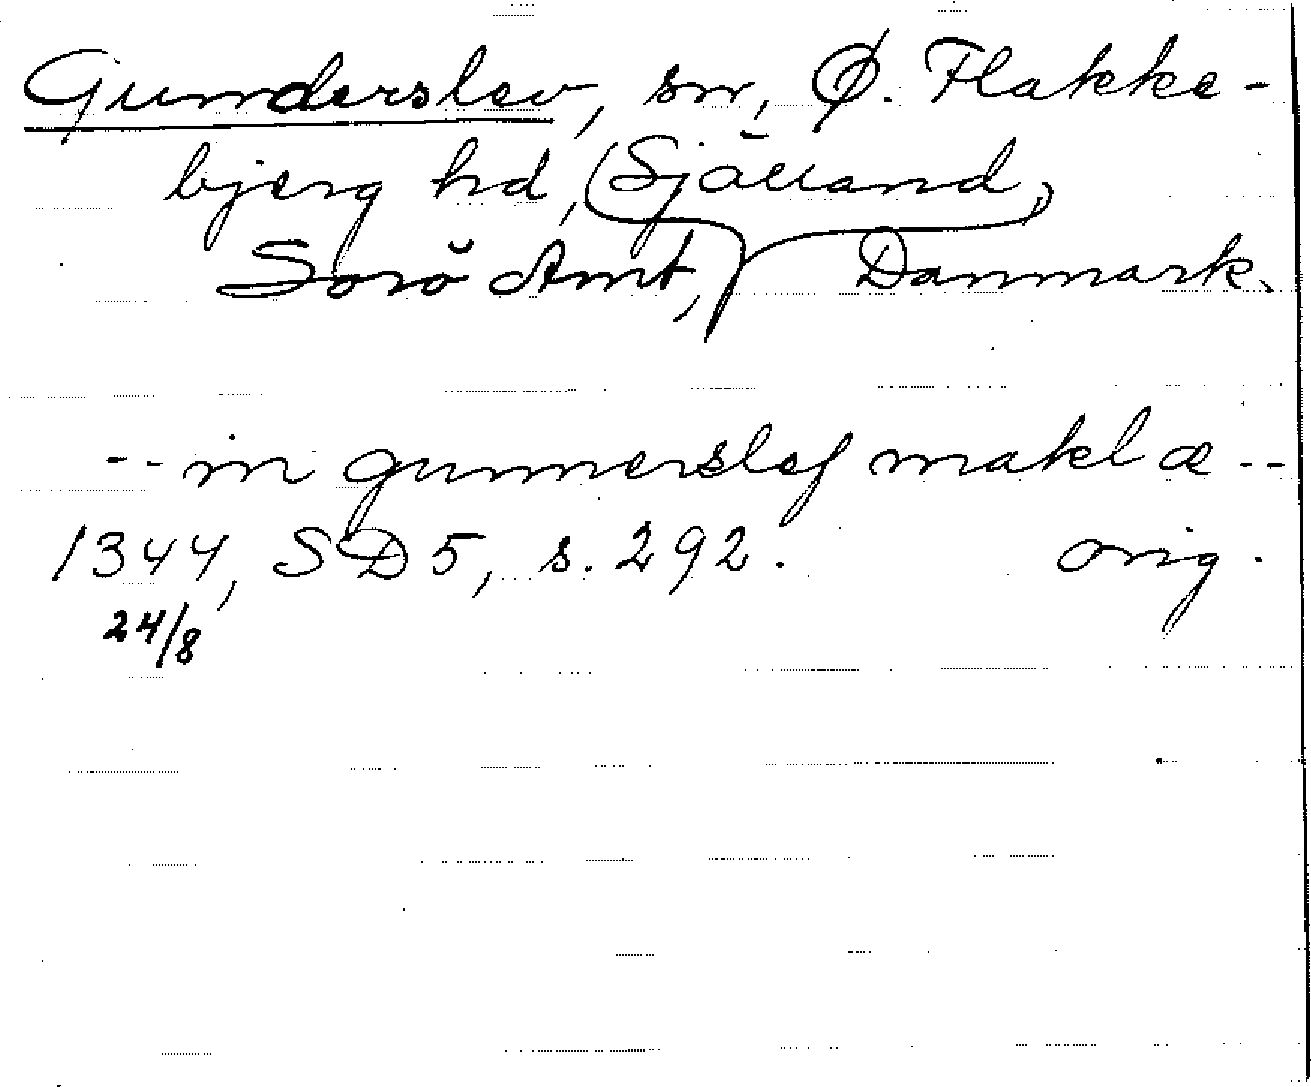 Gunderslev, sn, Ø. Flakke-
bjerg hd, (Själland,)
Sorö Amt, Danmark.
-- in gunnerslef maklæ --
1344, SD 5, s. 292. orig.
24/8